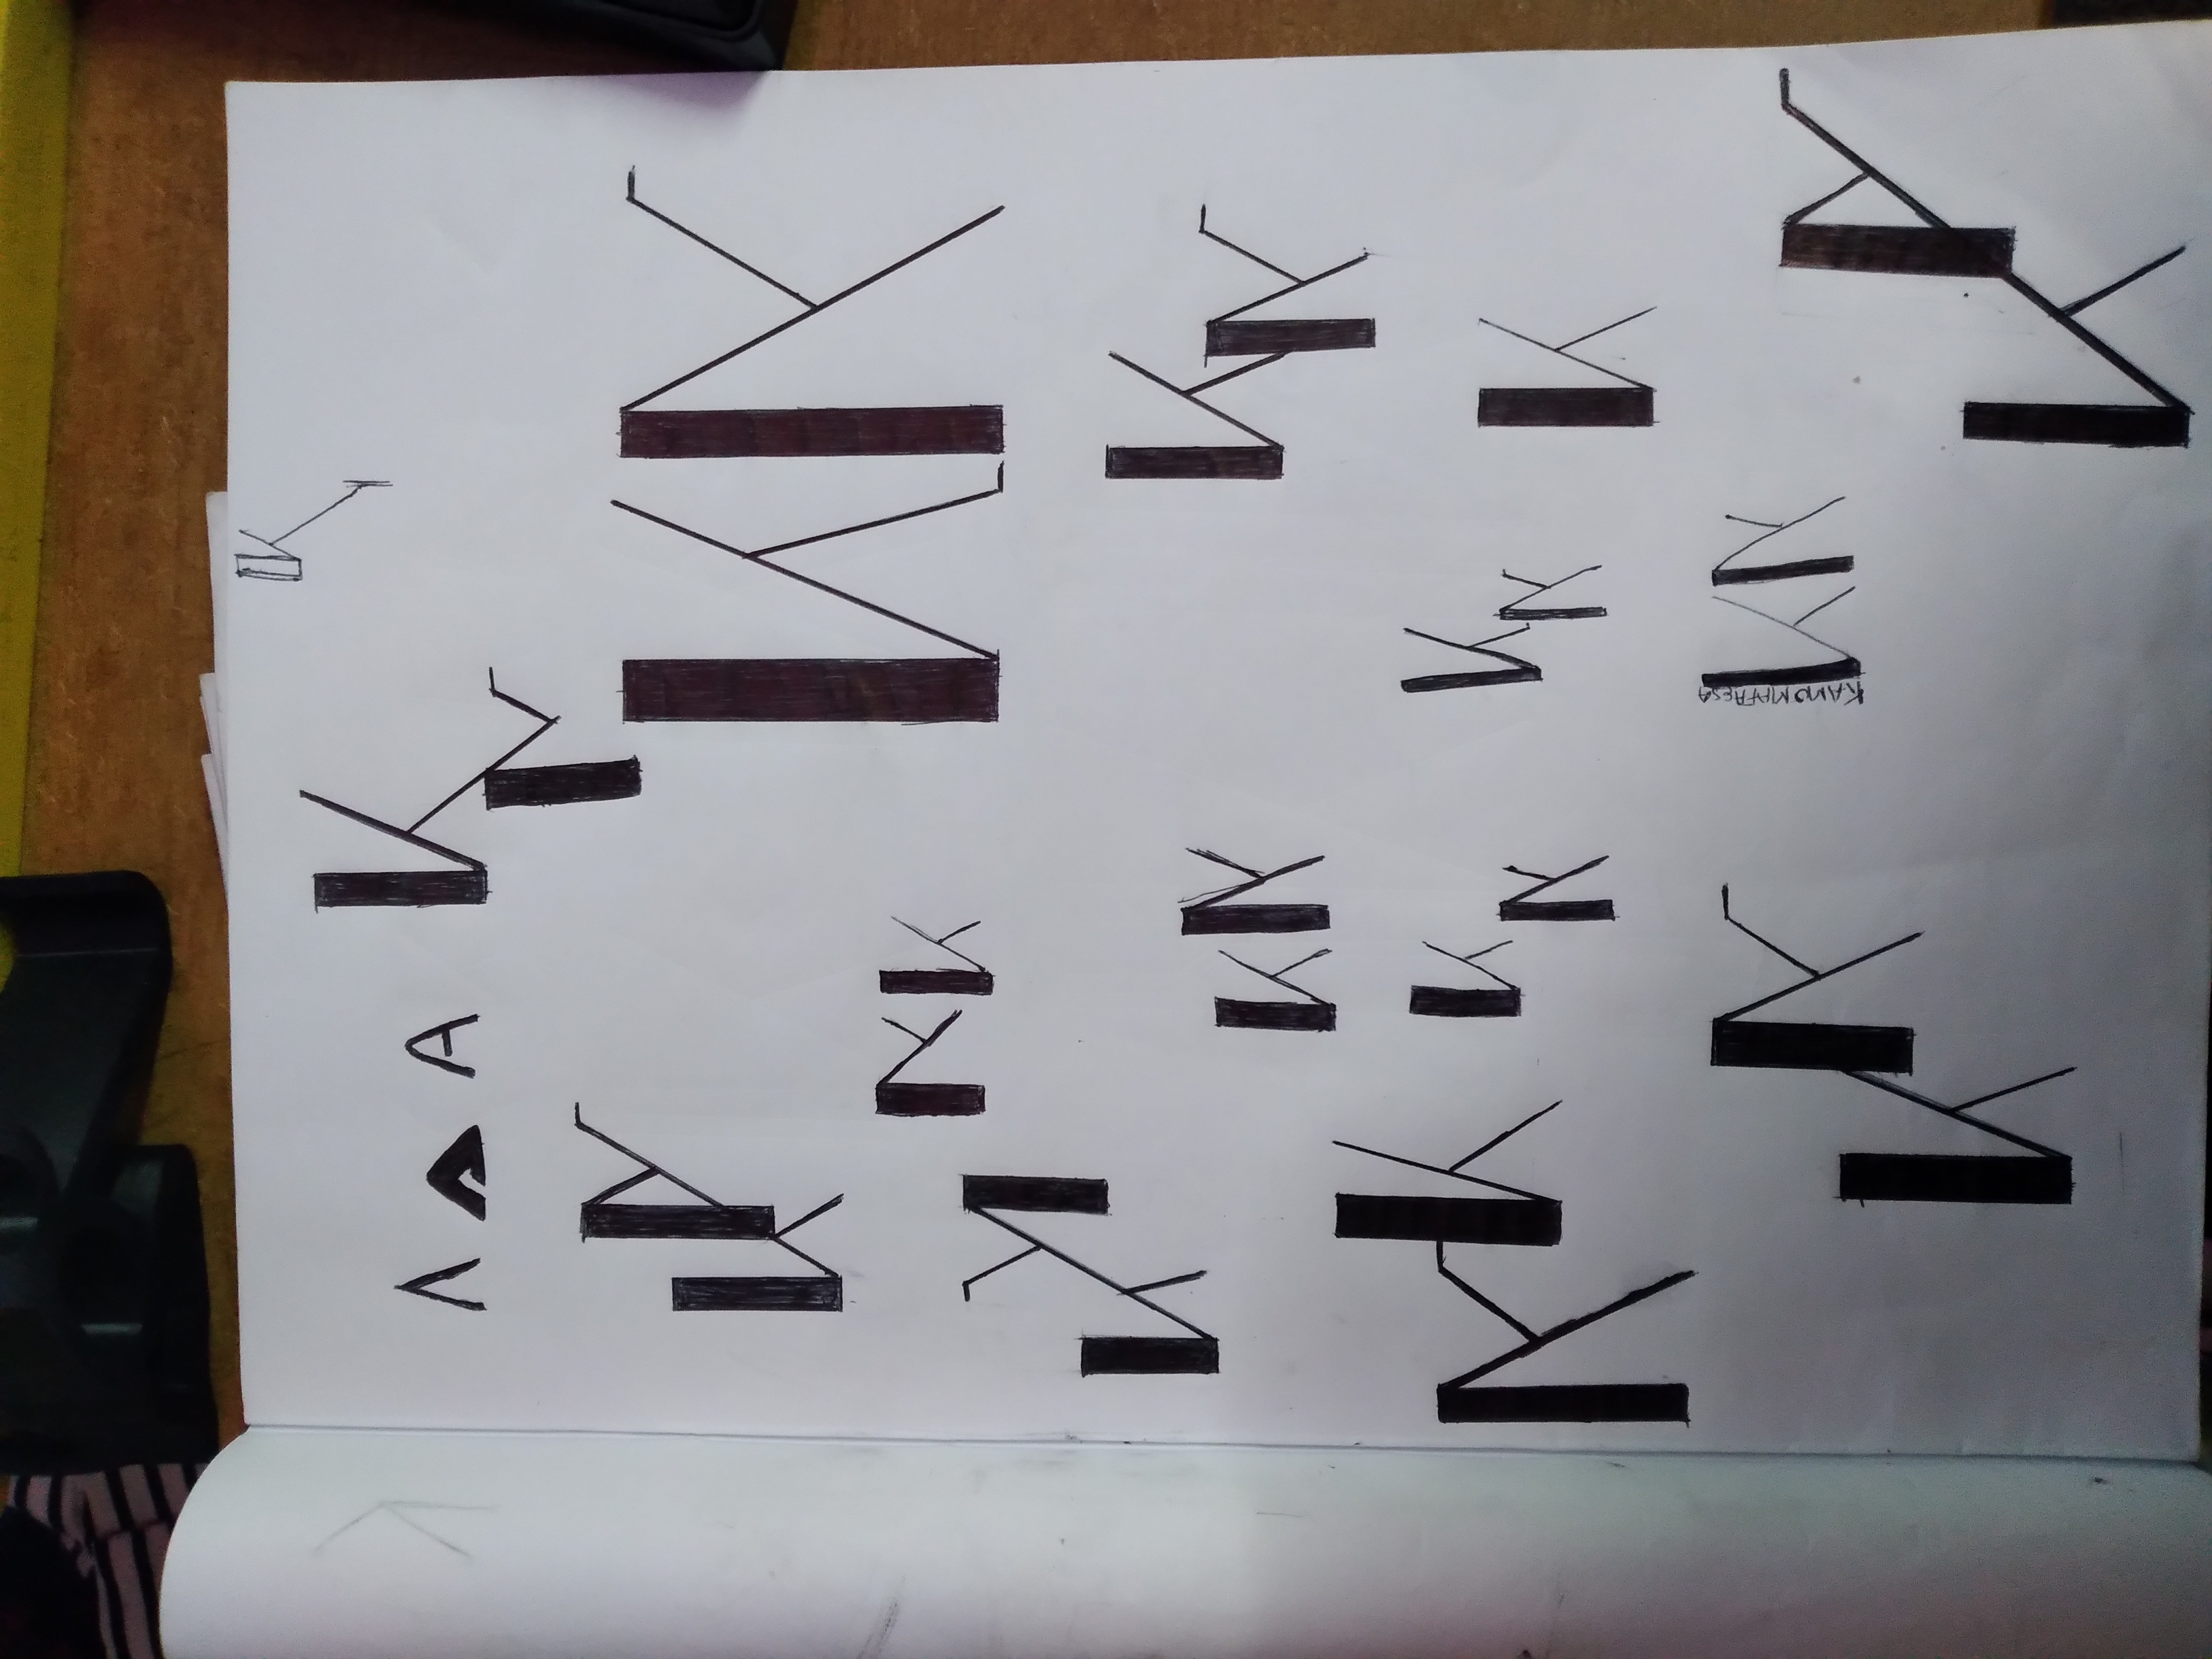 K
Λ A A
K
K K
K K
K K
K K
K K
K K
K K
K K
K K
K K
K
K K
KAMO MAFAESA
K K
K K